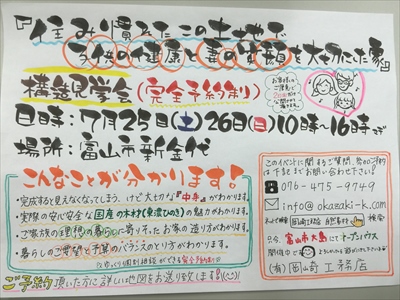 『住み慣れたこの土地で
子供の健康と妻の笑顔を大切にした家』
構造見学会(完全予約制)
日時:7月25日(土)26日(日)10時~16時まで
場所:富山市新金代
こんなことが分かります!
・完成すると見えなくなってしまう、けど大切な『中身』がわかります。
・実際の安心安全な国産の木材(東濃ひのき)の魅力がわかります。
・ご家族の理想の暮らしに寄りそった、お家の造り方がわかります。
・暮らしのご要望と予算のバランスのとり方がわかります。
ご予約頂いた方に詳しい地図をお送り致します!
このイベントに関するご質問、
は下記までお問い合わせ下さい!
076-475-9749
info@okazaki-k.com
検索
只今、富山市大島にてオープンハウス
開催中
(有)岡崎工務店